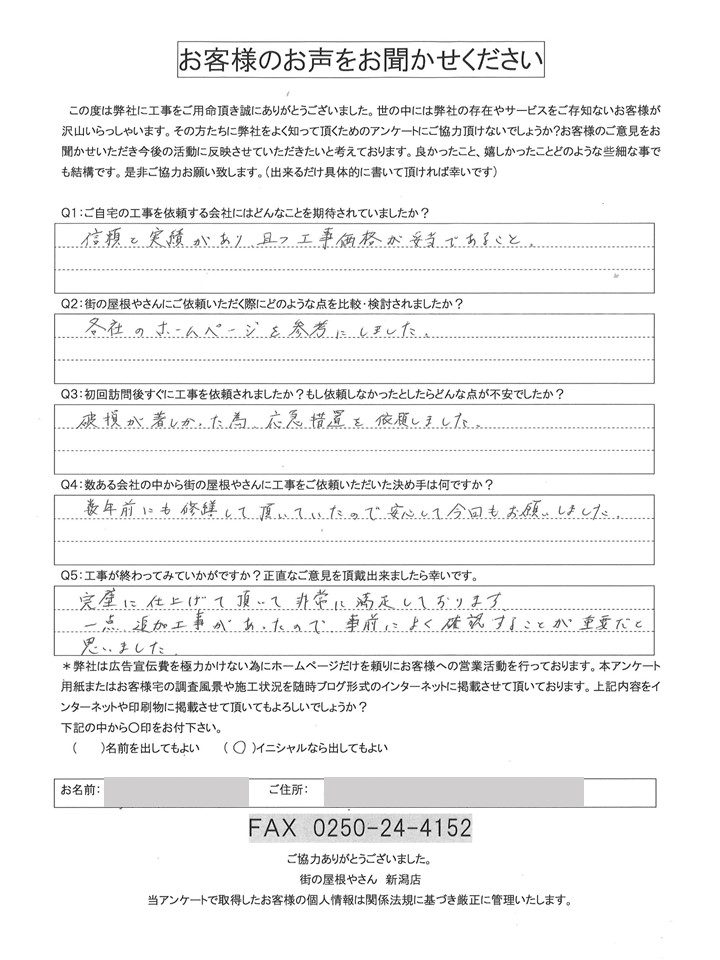 お客様のお声をお聞かせください
この度は弊社に工事をご用命頂き誠にありがとうございました。世の中には弊社の存在やサービスをご存知ないお客様が
沢山いらっしゃいます。その方たちに弊社をよく知って頂くためのアンケートにご協力頂けないでしょうか?お客様のご意見をお
聞かせいただき今後の活動に反映させていただきたいと考えております。良かったこと、嬉しかったことどのような些細な事で
も結構です。是非ご協力お願い致します。(出来るだけ具体的に書いて頂ければ幸いです)
Q1:ご自宅の工事を依頼する会社にはどんなことを期待されていましたか?
信頼と実績があり且つ工事価格が妥当であること。
Q2:街の屋根やさんにご依頼いただく際にどのような点を比較・検討されましたか?
各社のホームページを参考にしました。
Q3:初回訪問後すぐに工事を依頼されましたか?もし依頼しなかったとしたらどんな点が不安でしたか?
破損が著しかった為、応急措置を依頼しました。
Q4:数ある会社の中から街の屋根やさんに工事をご依頼いただいた決め手は何ですか?
数年前にも修繕して頂いていたので安心して今回もお願いしました。
Q5:工事が終わってみていかがですか?正直なご意見を頂戴出来ましたら幸いです。
完璧に仕上げて頂いて非常に満足しております。
一点 追加工事があったので、事前によく確認することが重要だと
思いました。
*弊社は広告宣伝費を極力かけない為にホームページだけを頼りにお客様への営業活動を行っております。本アンケート
用紙またはお客様宅の調査風景や施工状況を随時ブログ形式のインターネットに掲載させて頂いております。上記内容をイ
ンターネットや印刷物に掲載させて頂いてもよろしいでしょうか?
下記の中から〇印をお付下さい。
( )名前を出してもよい (〇)イニシャルなら出してもよい
お名前: ご住所:
FAX 0250-24-4152
ご協力ありがとうございました。
街の屋根やさん 新潟店
当アンケートで取得したお客様の個人情報は関係法規に基づき厳正に管理いたします。